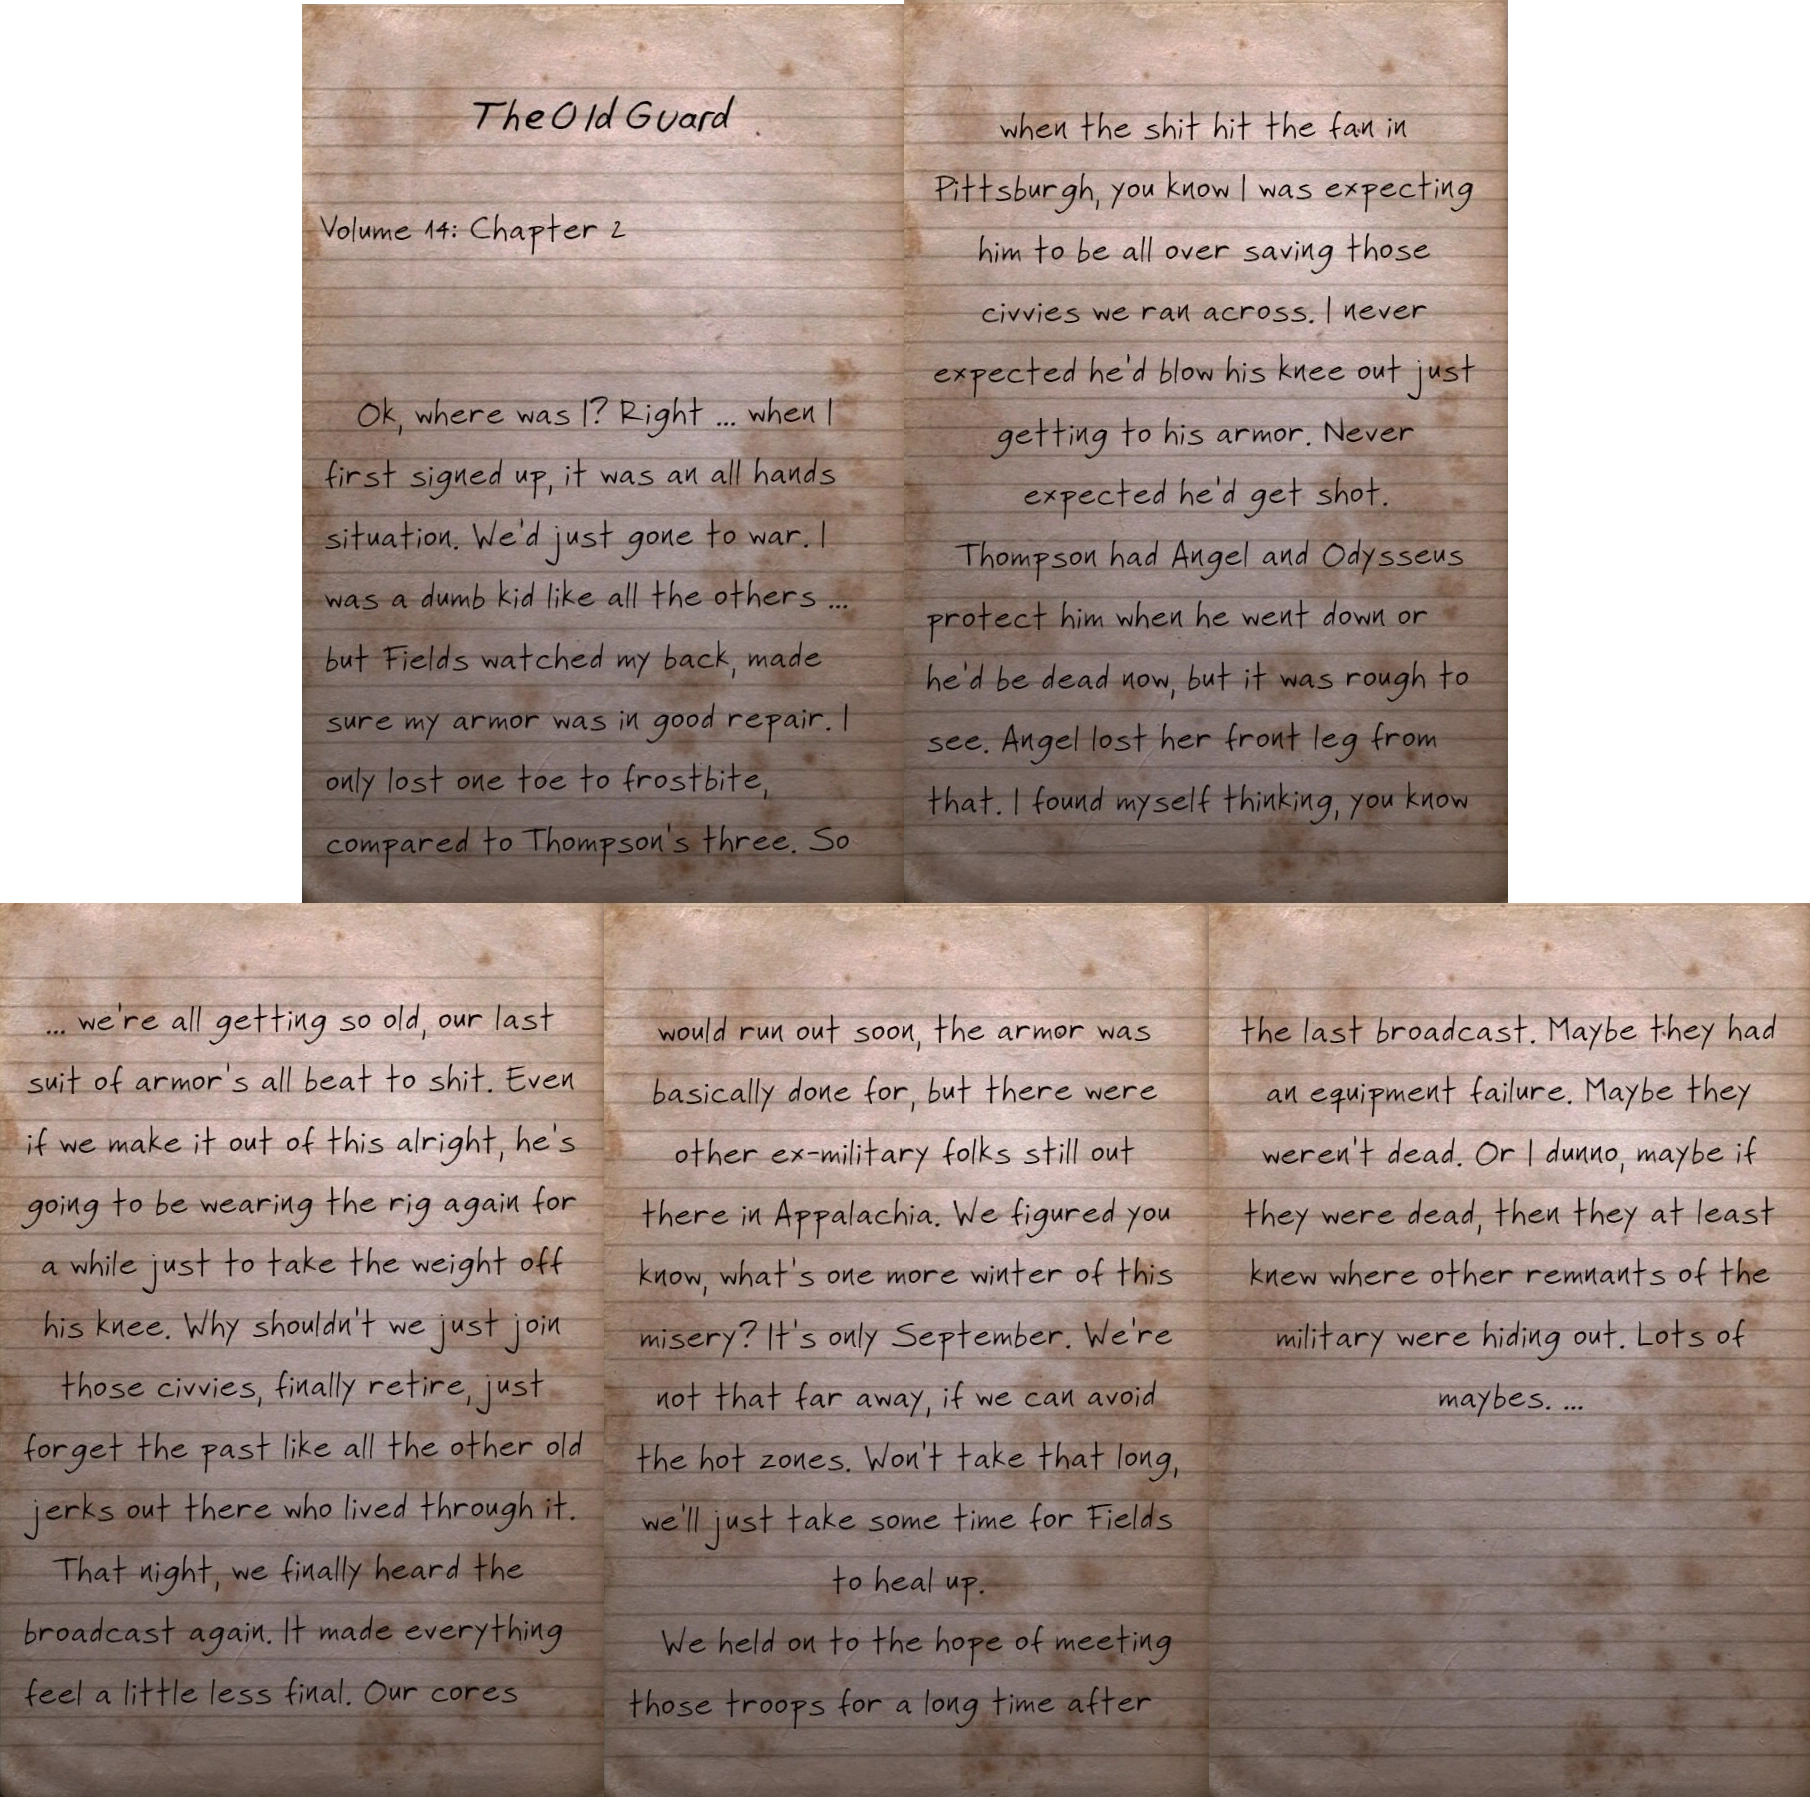 The Old Guard
Volume 14: Chapter 2
Ok, where was I? Right ... when I
first signed up, it was an all hands
situation. We'd just gone to war. I
was a dumb kid like all the others ...
but Fields watched my back, made
sure my armor was in good repair. I
only lost one toe to frostbite,
compared to Thompson's three. So
when the shit hit the fan in
Pittsburgh, you know I was expecting
him to be all over saving those
civvies we ran across. I never
expected he'd blow his knee out just
getting to his armor. Never
expected he'd get shot.
Thompson had Angel and Odysseus
protect him when he went down or
he'd be dead now, but it was rough to
see. Angel lost her front leg from
that. I found myself thinking, you know
... we're all getting so old, our last
suit of armor's all beat to shit. Even
if we make it out of this alright, he's
going to be wearing the rig again for
a while just to take the weight off
his knee. Why shouldn't we just join
those civvies, finally retire, just
forget the past like all the other old
jerks out there who lived through it.
That night, we finally heard the
broadcast again. It made everything
feel a little less final. Our cores
would run out soon, the armor was
basically done for, but there were
other ex-military folks still out
there in Appalachia. We figured you
know, what's one more winter of this
misery? It's only September. We're
not that far away, if we can avoid
the hot zones. Won't take that long,
we'll just take some time for Fields
to heal up.
We held on to the hope of meeting
those troops for a long time after
the last broadcast. Maybe they had
an equipment failure. Maybe they
weren't dead. Or I dunno, maybe if
they were dead, then they at least
knew where other remnants of the
military were hiding out. Lots of
maybes. ...